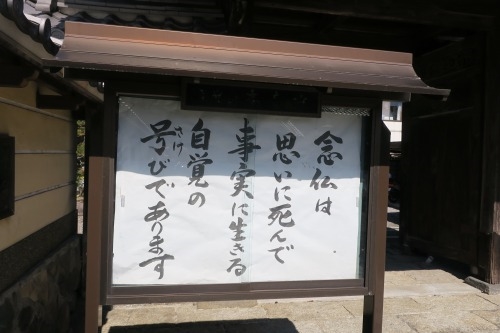 念仏は
思いに死んで
事実に生きる
自覚の
号びであります
さけ